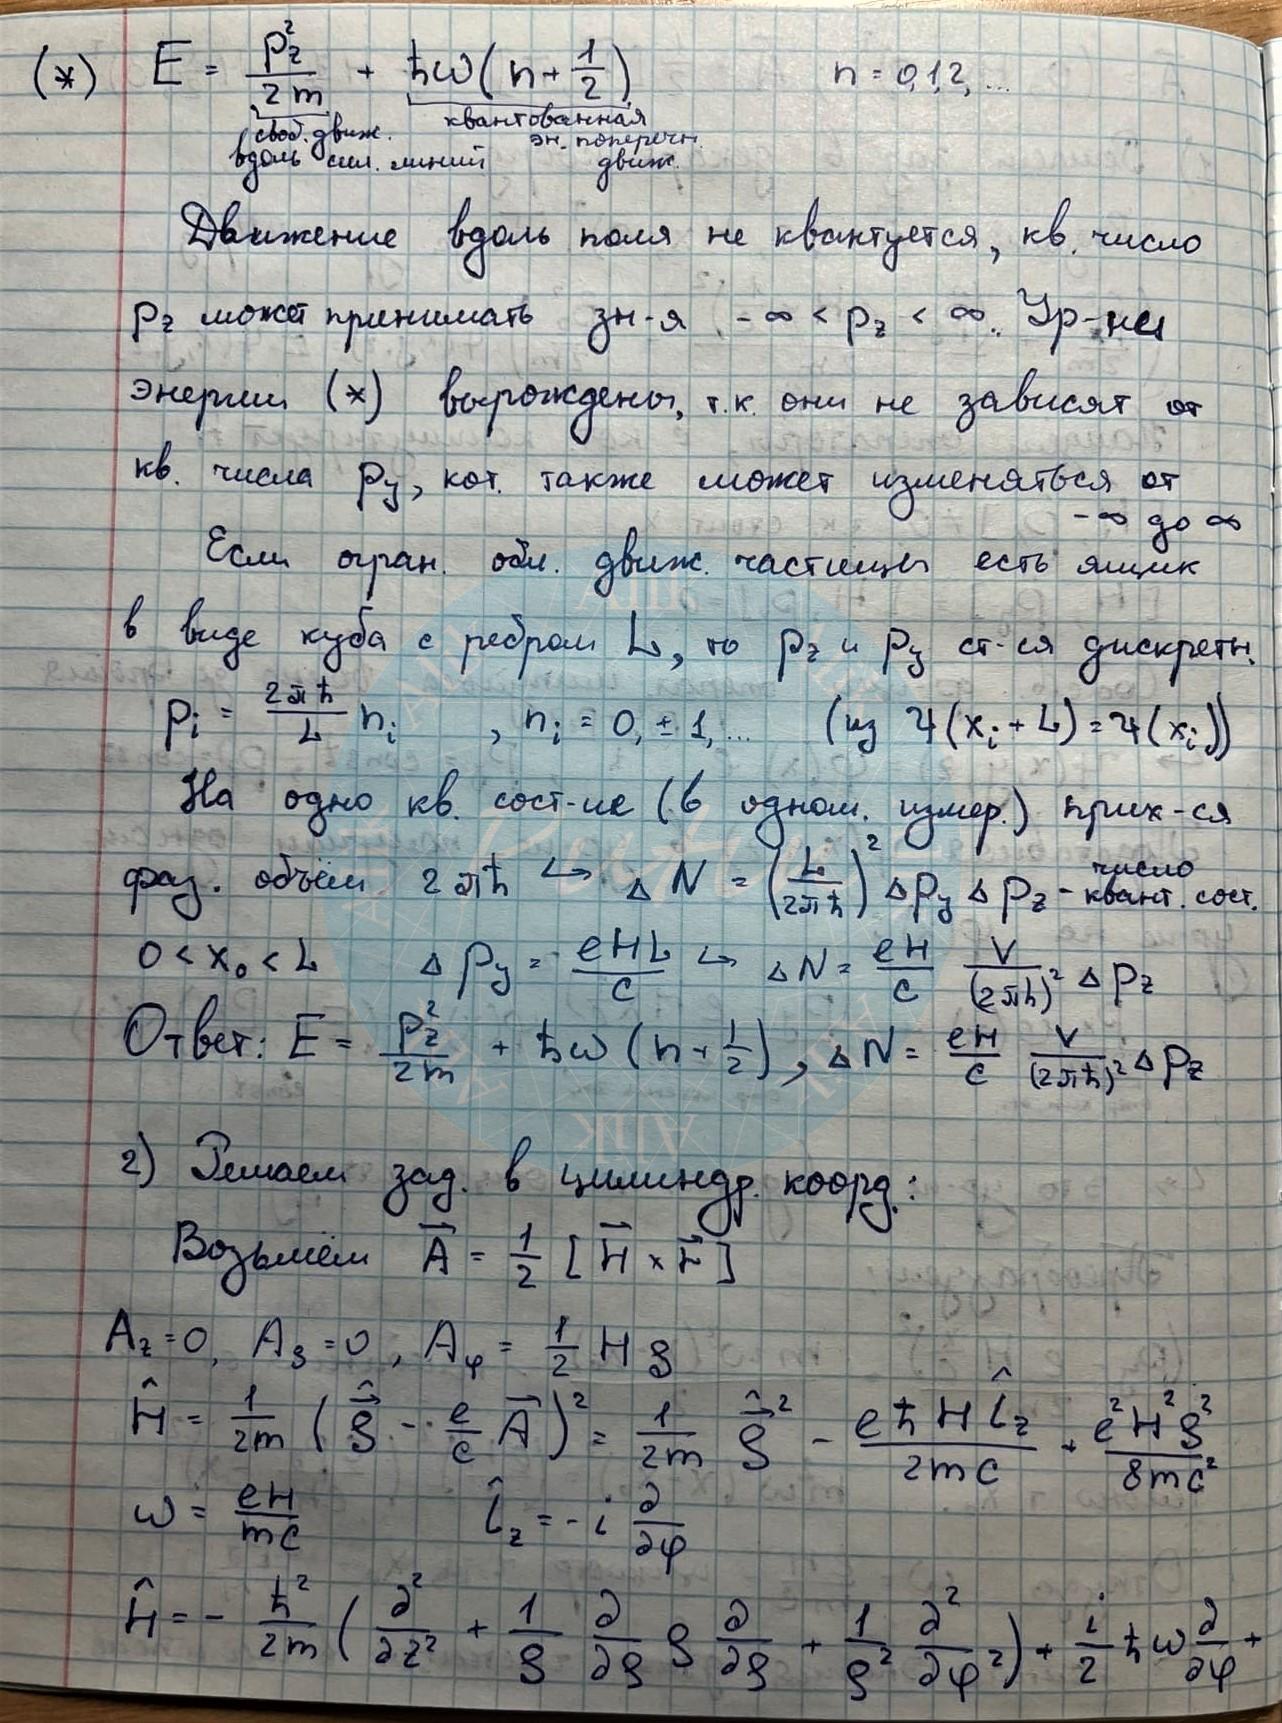 (*) E = p_z²/2m + ħω(n + 1/2) n = 0,1,2,...
своб. движ. вдоль сил. линий
квантованная эн. поперечн. движ.
Движение вдоль поля не квантуется, кв. число
p_z может принимать зн-я -∞ < p_z < ∞. Ур-ни
энергии (*) вырождены, т.к. они не зависят от
кв. числа p_y, кот. также может изменяться от
-∞ до ∞
Если огран. обл. движ. частицы есть ящик
в виде куба с ребром L, то p_z и p_y ст-ся дискретн.
p_i = 2πħ/L n_i , n_i = 0, ±1, ... (из Ψ(x_i + L) = Ψ(x_i))
На одно кв. сост-ие (в одном. измер.) прих-ся
фаз. объём 2πħ ↪ ΔN = (L/2πħ)² Δp_y Δp_z - число квант. сост.
0 < x₀ < L Δp_y = eHL/c ↪ ΔN = eH/c V/(2πħ)² Δp_z
Ответ: E = p_z²/2m + ħω(n + 1/2), ΔN = eH/c V/(2πħ)² Δp_z
2) Решаем зад. в цилиндр. коорд.:
Возьмём A⃗ = 1/2 [H⃗ × r⃗]
A_z = 0, A_ρ = 0, A_φ = 1/2 Hρ
Ĥ = 1/2m (ρ̂⃗ - e/c A⃗)² = 1/2m ρ̂⃗² - eħH l̂_z/2mc + e²H²ρ²/8mc²
ω = eH/mc l̂_z = -i ∂/∂φ
Ĥ = - ħ²/2m (∂²/∂z² + 1/ρ ∂/∂ρ ρ ∂/∂ρ + 1/ρ² ∂²/∂φ²) + i/2 ħω ∂/∂φ +